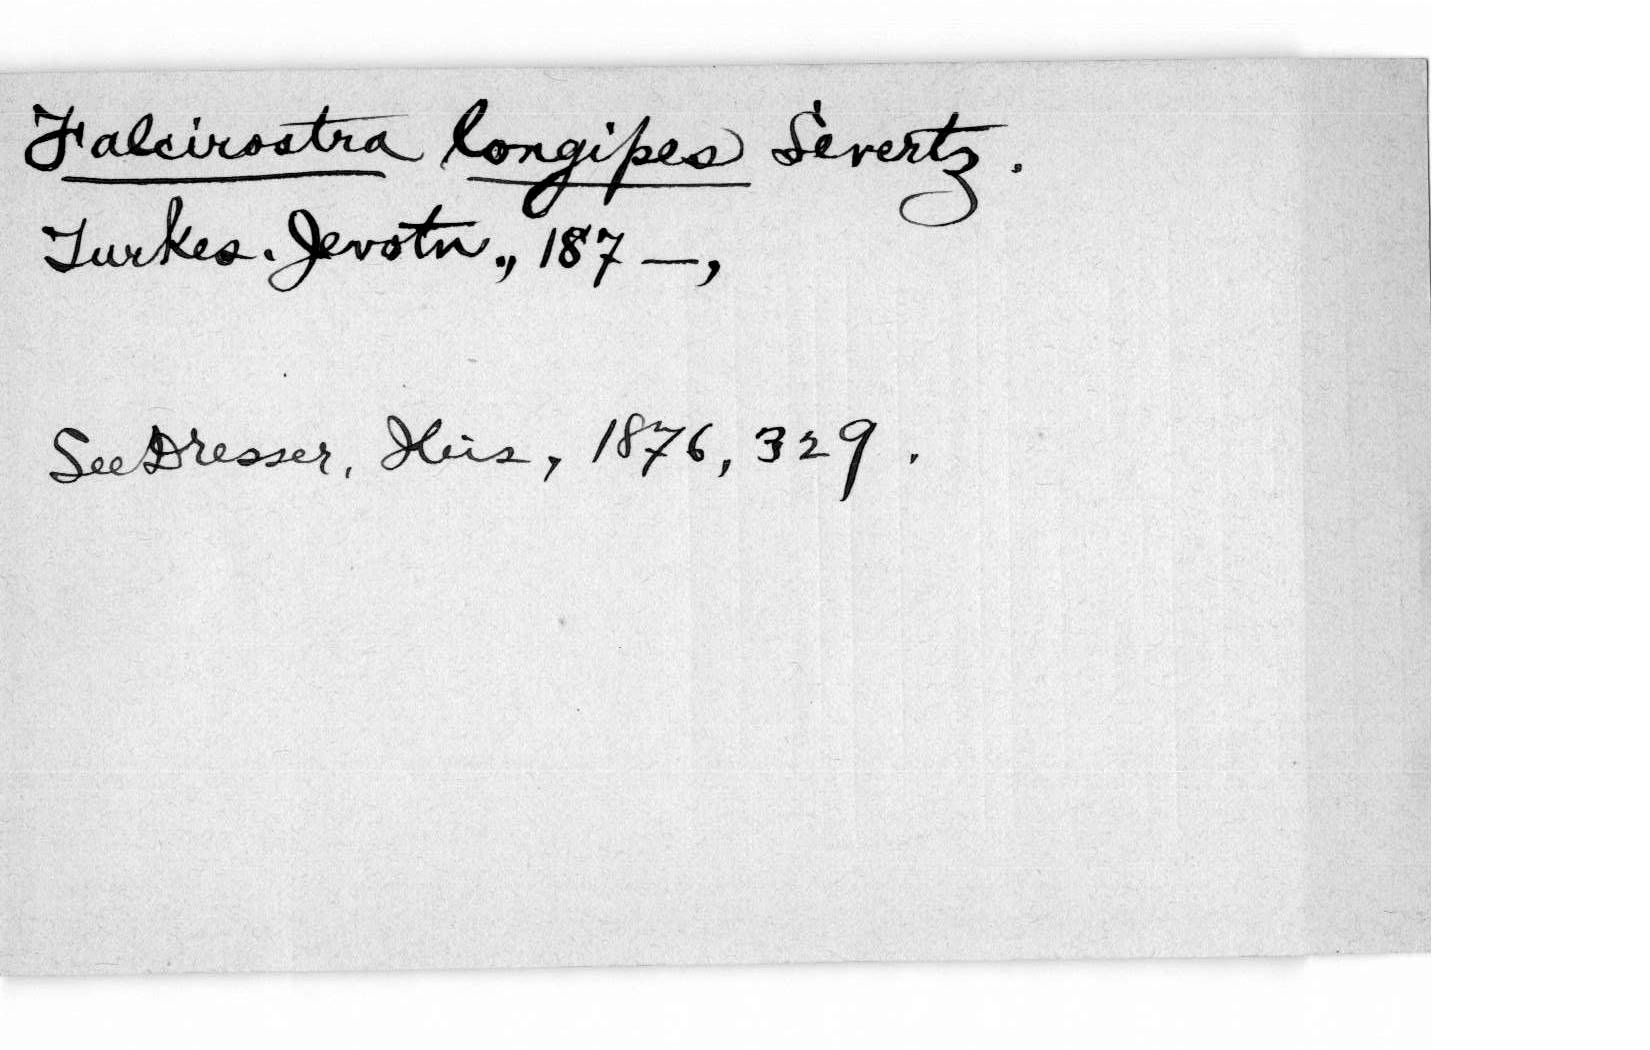 Falcirostra longipes Severtz.
Turkes. Jevotn., 187—,
See Dresser, Ibis, 1876, 329.